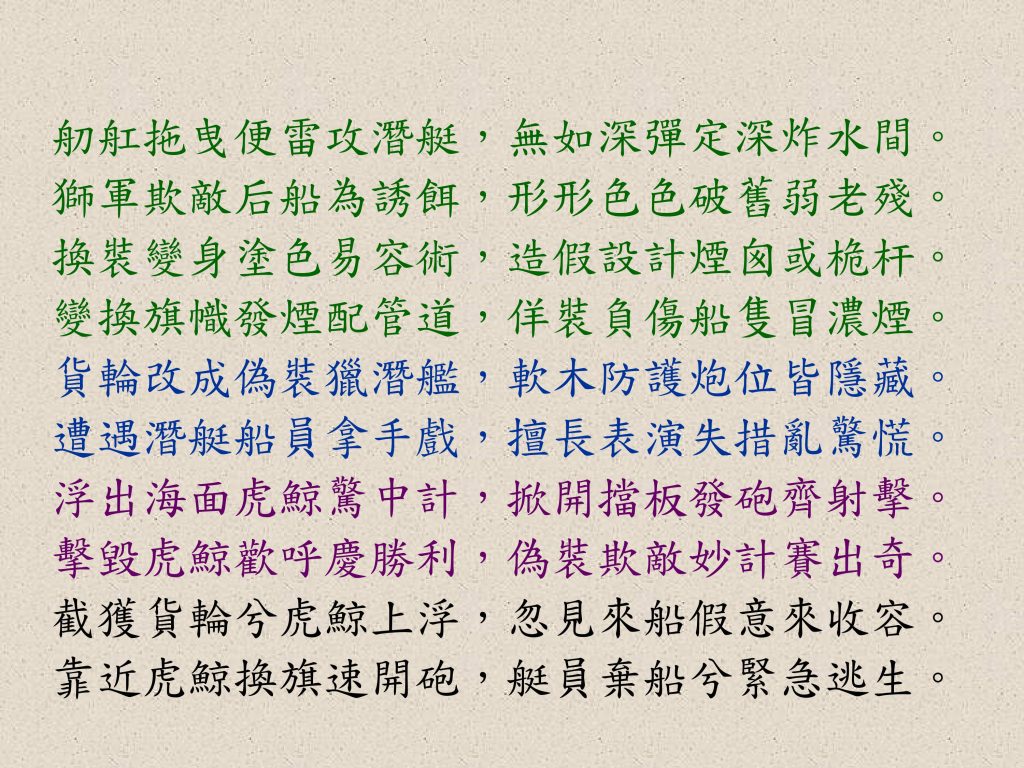 舠舡拖曳便雷攻潛艇，無如深彈定深炸水間。
獅軍欺敵后船為誘餌，形形色色破舊弱老殘。
換裝變身塗色易容術，造假設計煙囪或桅杆。
變換旗幟發煙配管道，佯裝負傷船隻冒濃煙。
貨輪改成偽裝獵潛艦，軟木防護炮位皆隱藏。
遭遇潛艇船員拿手戲，擅長表演失措亂驚慌。
浮出海面虎鯨驚中計，掀開擋板發砲齊射擊。
擊毀虎鯨歡呼慶勝利，偽裝欺敵妙計賽出奇。
截獲貨輪兮虎鯨上浮，忽見來船假意來收容。
靠近虎鯨換旗速開砲，艇員棄船兮緊急逃生。